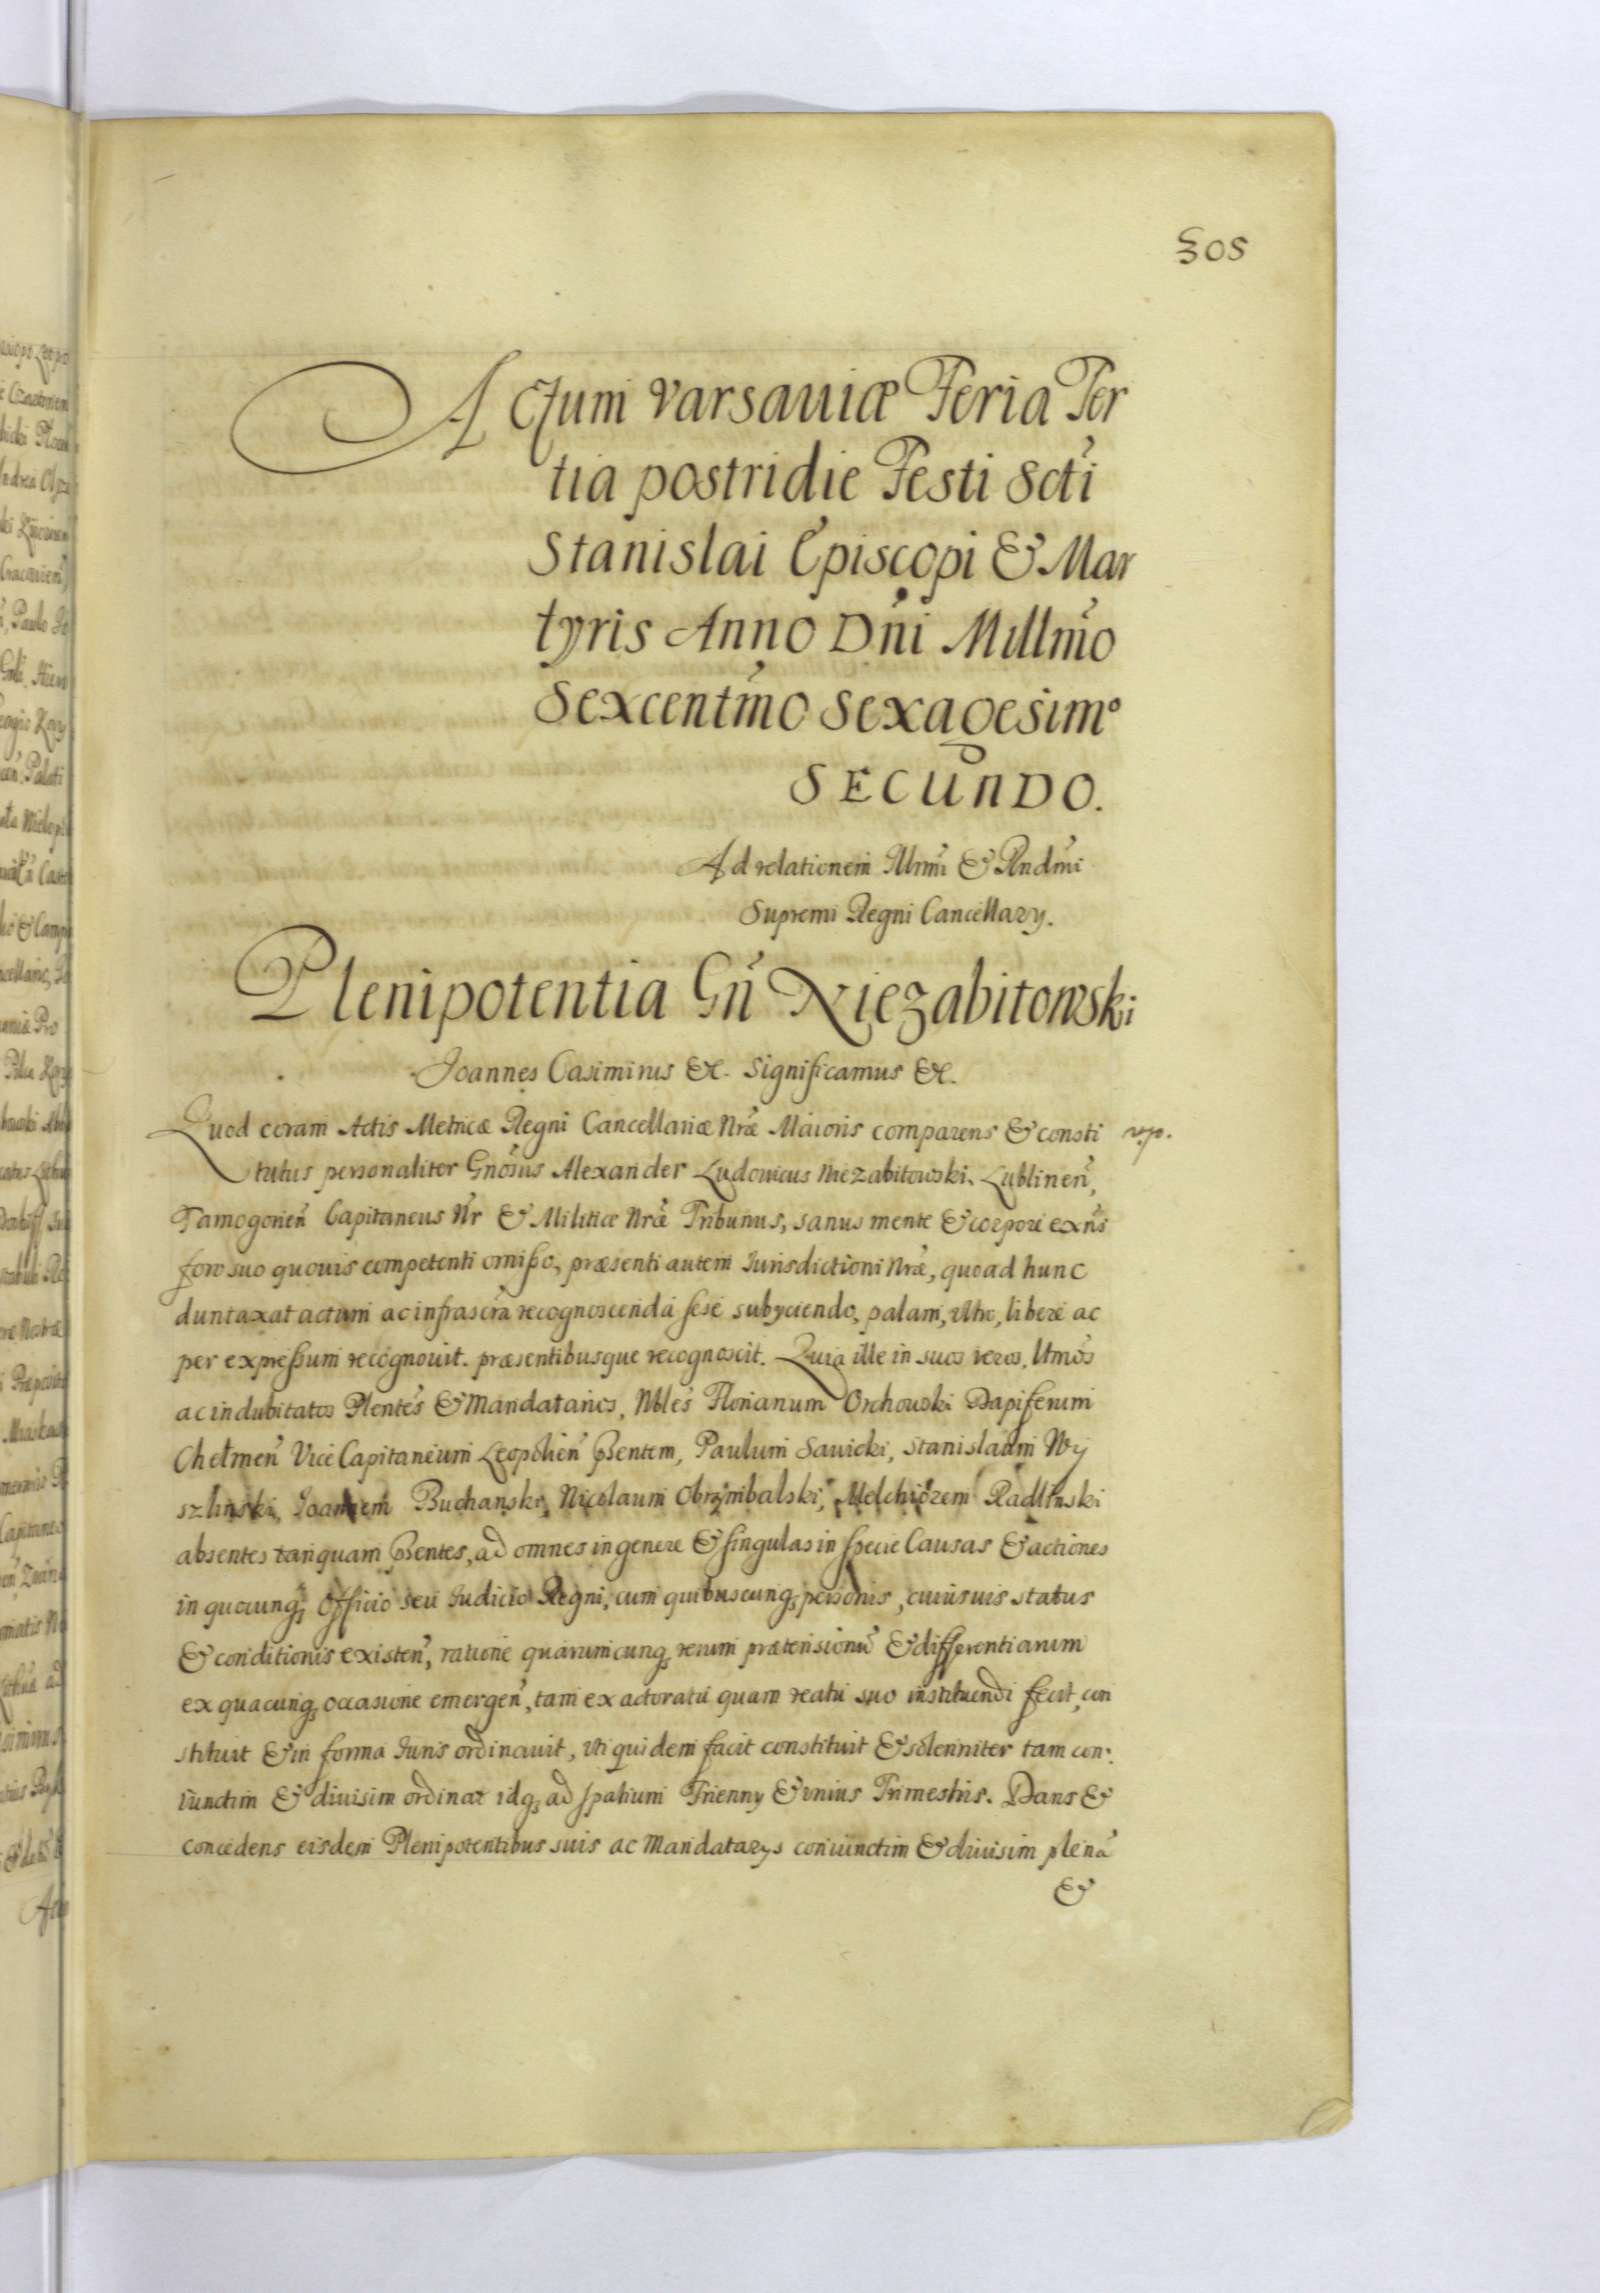 305
Actum Varsaviæ Feria Ter
tia postridie Festi Scti
Stanislai Episcopi & Mar
tyris Anno Dni Millmo
Sexcentmo Sexagesimo
SECUNDO.
Ad relationem Illrmi & Rndmi
Supremi Regni Cancellary.
Plenipotentia Gn Niezabitowski
Joannes Casimirus &c. Significamus &c.
Quod coram Actis Metricæ Regni Cancellariæ Nræ Maioris comparens & consti
tutus personaliter Gnosus Alexander Ludovicus Niezabitowski, Lublinen,
Tarnogorien Capitaneus Nr & Militiæ Nræ Tribunus, sanus mente & corpore exns
foro suo quovis competenti omisso, præsenti autem Iurisdictioni Nræ, quoad hunc
duntaxat actum ac infrascra recognoscenda sese subyciendo, palam, vltro, libere ac
per expressum recognouit. præsentibusque recognoscit. Quia ille in suos veros, ltmos
ac indubitatos Plentes & Mandatarios, Nbles Florianum Orchowski Dapiferum
Chełmen Vice Capitaneum Leopolien Pntem, Paulum Sawicki, Stanislaum Wy
szlinski, Joannem Buchanski, Nicolaum Obrzmbalski, Melchiorem Radlinski
absentes tanquam Pntes, ad omnes in genere & singulas in specie Causas & actiones
in quocunq, Officio seu Iudicio Regni, cum quibuscunq, personis, cuiusuis status
& conditionis existen, ratione quarumcunq, rerum prætensionu & differentiarum
ex quacunq, occasione emergen, tam ex actoratu quam reatu suo instituendi fecit, con
stituit & in forma Iuris ordinauit, vti quidem facit constituit & solenniter tam con
iunctim & diuisim ordinat idq, ad spatium Trienny & vnius Trimestris. Dans &
concedens eisdem Plenipotentibus suis ac Mandatarys coniunctim & diuisim plena
&